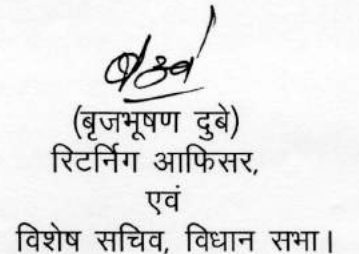 (बृजभूषण दुबे)
रिटर्निग आफिसर,
एवं
विशेष सचिव, विधान सभा।